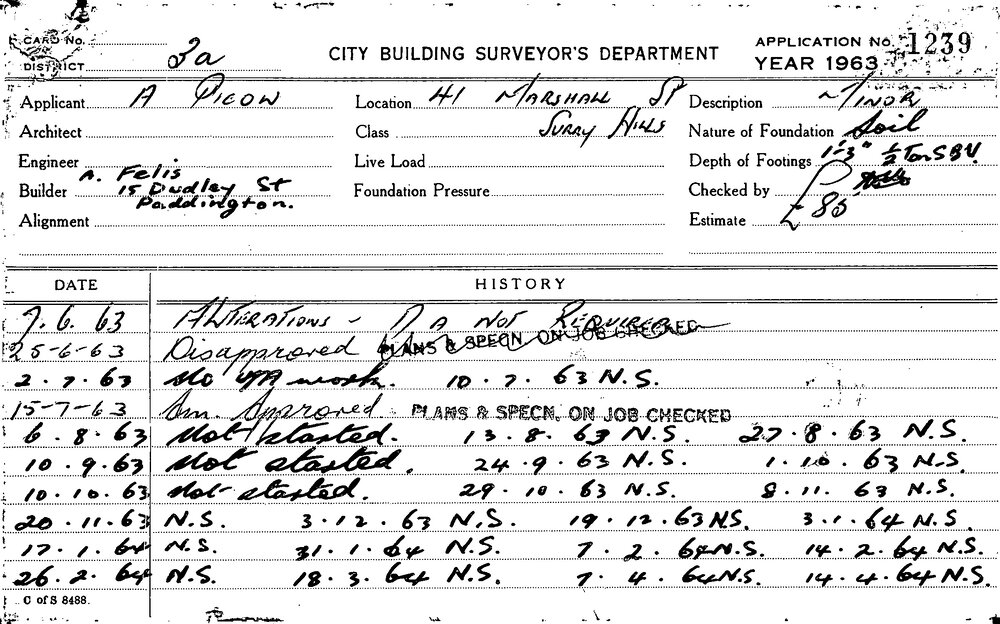 CARD No.
DISTRICT 3a
CITY BUILDING SURVEYOR'S DEPARTMENT
APPLICATION No. 1239
YEAR 1963
Applicant A Picow Location 41 Marshall St Description Minor
Architect Class Surry Hills Nature of Foundation Soil
Engineer Live Load Depth of Footings 1'-3" ½ Ton S.B.V.
Builder A. Felis 15 Dudley St Paddington. Foundation Pressure Checked by
Alignment Estimate £85
DATE HISTORY
7.6.63 Alterations - D A Not Required
25-6-63 Disapproved PLANS & SPECN. ON JOB CHECKED
2.7.63 No work. 10.7.63 N.S.
15-7-63 Am. Approved. PLANS & SPECN. ON JOB CHECKED
6.8.63 Not started. 13.8.63 N.S. 27.8.63 N.S.
10.9.63 Not started. 24.9.63 N.S. 1.10.63 N.S.
10.10.63 Not started. 29.10.63 N.S. 8.11.63 N.S.
20.11.63 N.S. 3.12.63 N.S. 19.12.63 NS. 3.1.64 N.S.
17.1.64 N.S. 31.1.64 N.S. 7.2.64 N.S. 14.2.64 N.S.
26.2.64 N.S. 18.3.64 N.S. 7.4.64 N.S. 14.4.64 N.S.
C of S 8488.